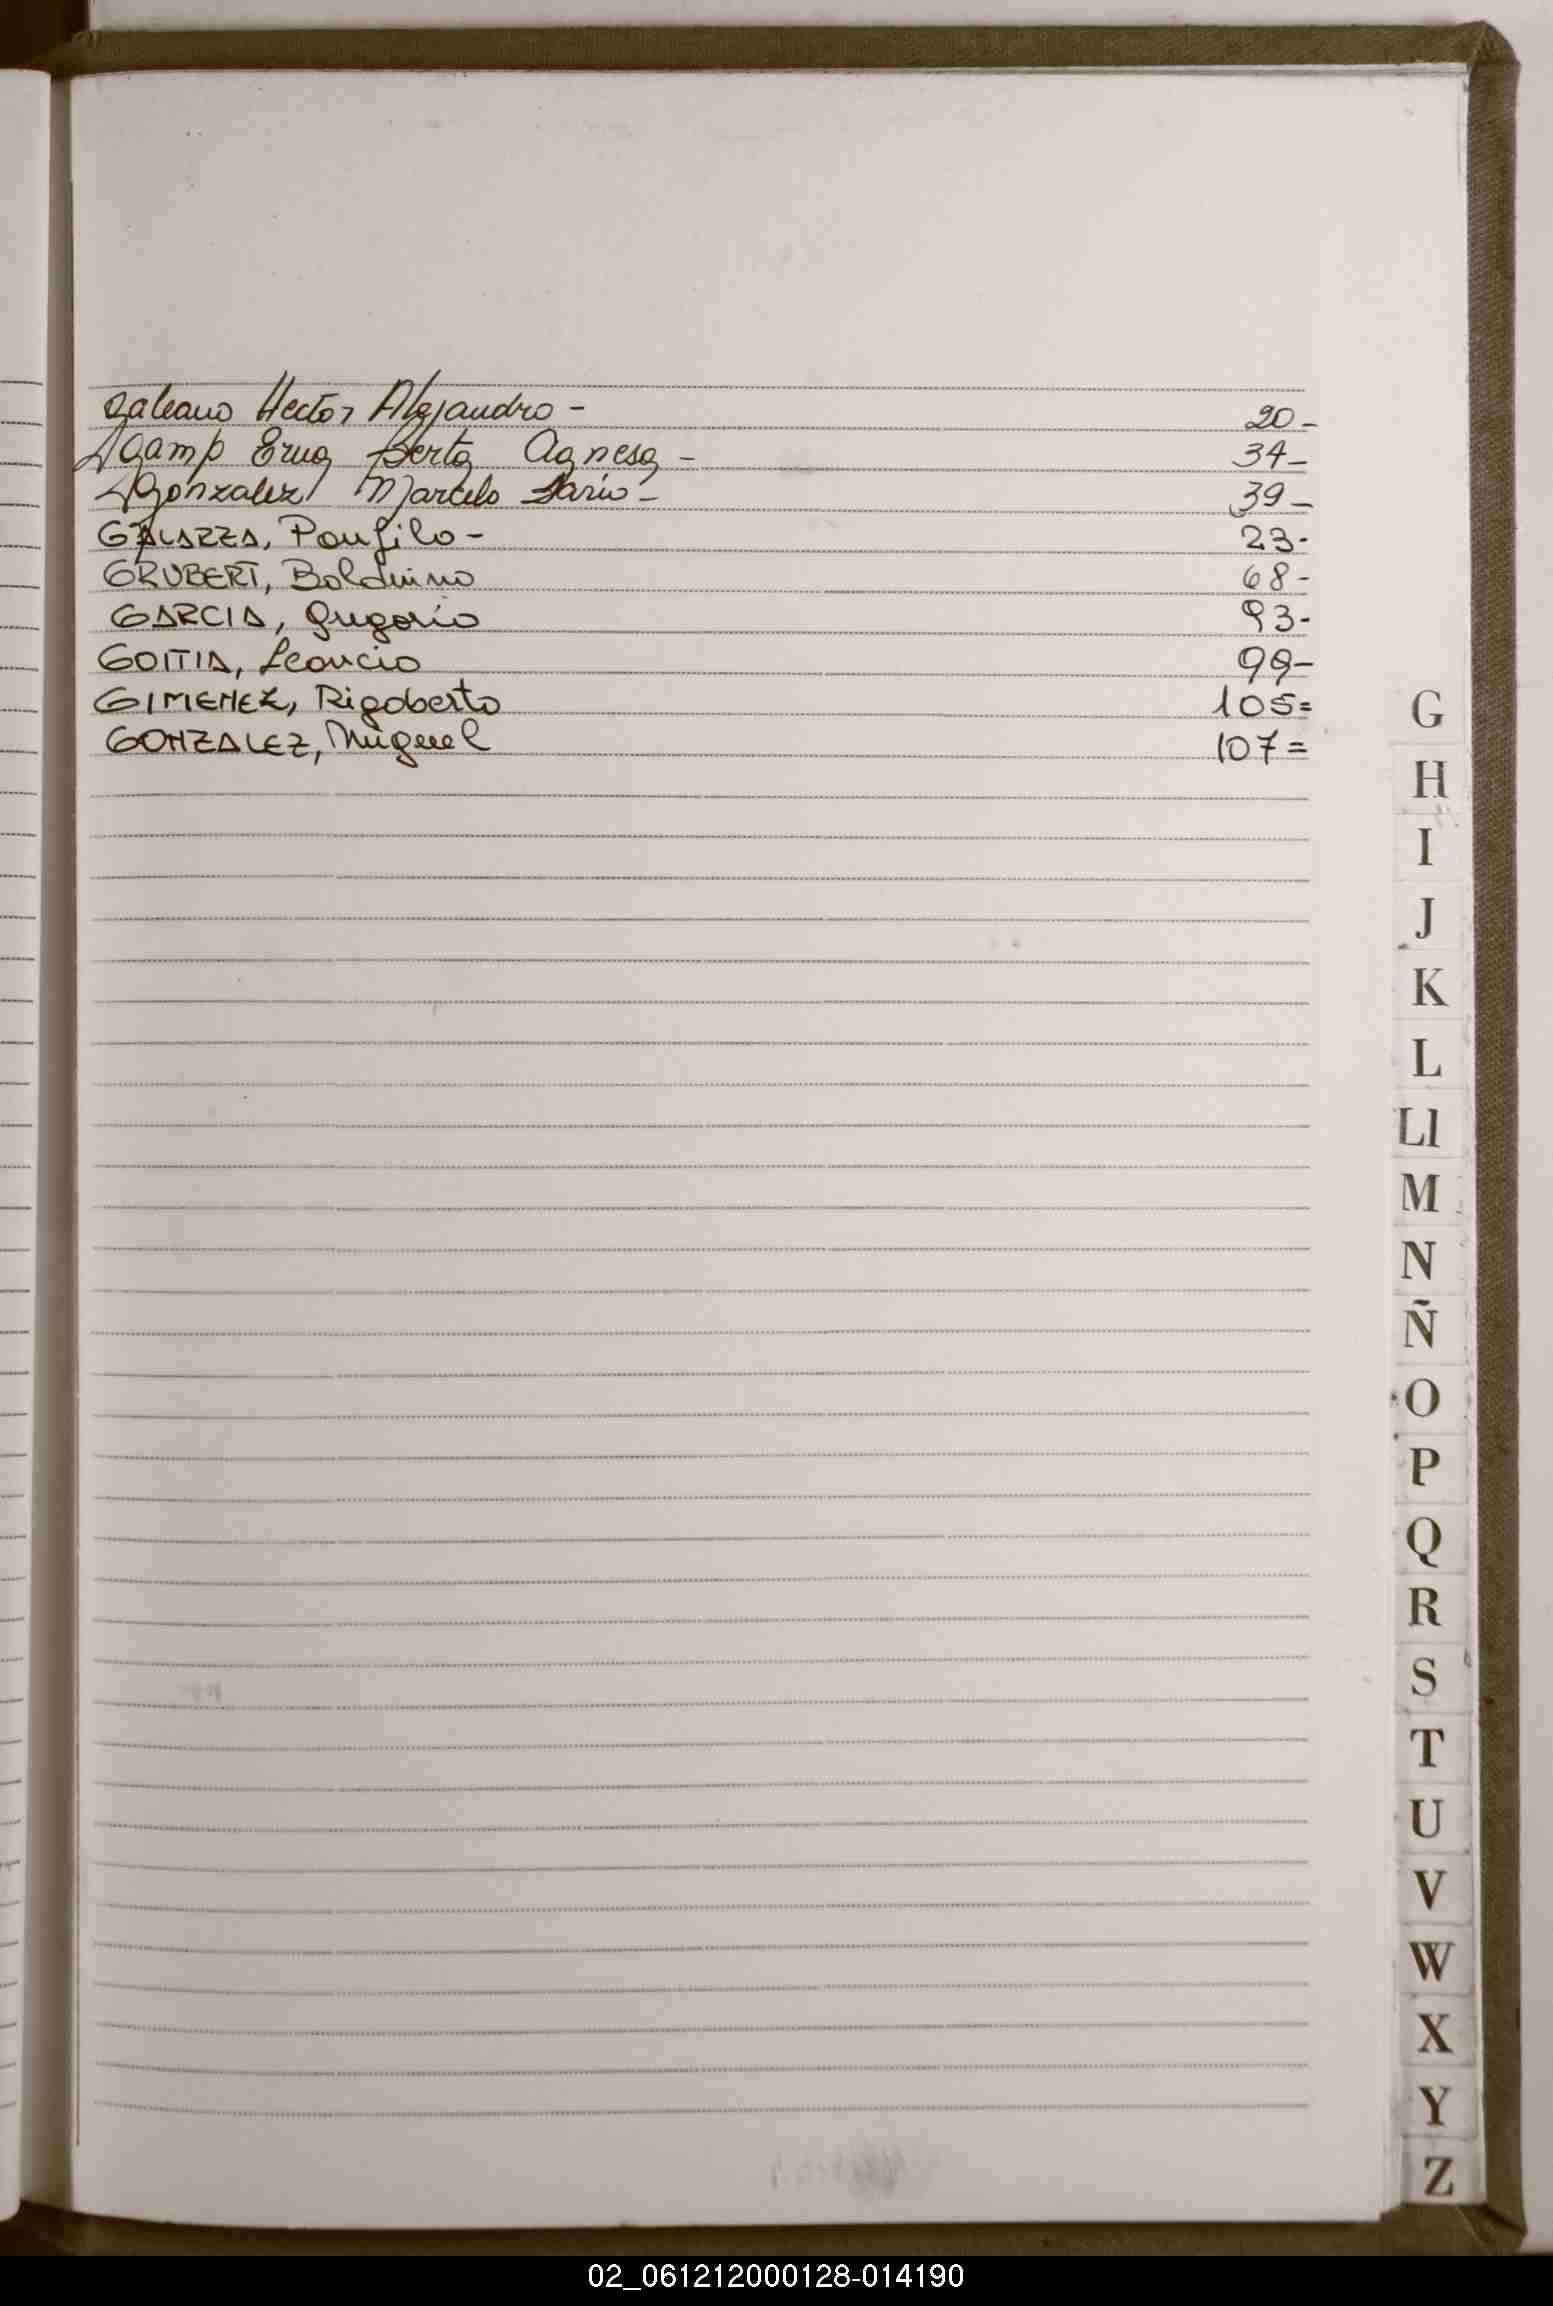 Galeano Hector Alejandro - 20-
Gamp Erna Berta Agnesa - 34-
Gonzalez Marcelo Dario - 39-
GALAZZA, Panfilo - 23-
GRUBERT, Balduino 68-
GARCIA, Gregorio 93-
GOITIA, Leoncio 99-
GIMENEZ, Rigoberto 105=
GONZALEZ, Miguel 107=
G
H
I
J
K
L
Ll
M
N
Ñ
O
P
Q
R
S
T
U
V
W
X
Y
Z
02_061212000128-014190